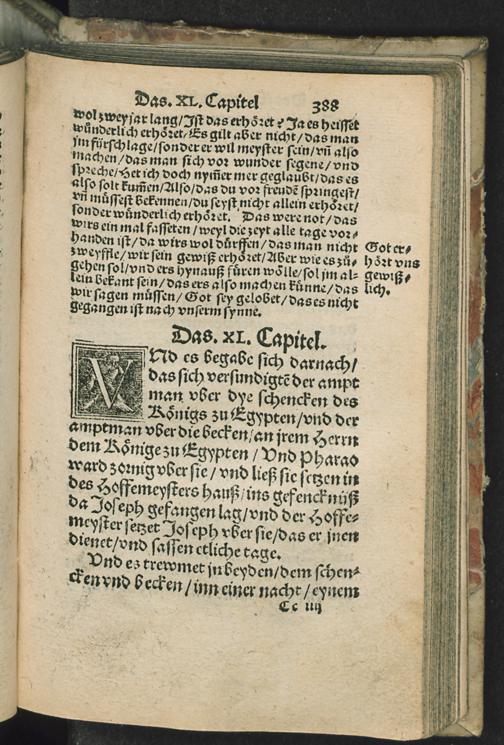 Das. XL. Capitel 388
wol zwey jar lang/ Ist das erhöret? Ja es heisset
wünderlich erhöret/ Es gilt aber nicht/ das man
jm fürschlage/ sonder er wil meyster sein/ vñ also
machen/ das man sich vor wunder segene/ vnd
spreche/ Het ich doch nym̃er mer geglaubt/ das es
also solt kum̃en/ Also/ das du vor freudẽ springest/
vñ müssest bekennen/ du seyst nicht allein erhöret/
sonder wünderlich erhöret. Das were not/ das
wirs ein mal fasseten/ weyl die zeyt alle tage vor-
handen ist/ da wirs wol dürffen/ das man nicht
zweyffle/ wir sein gewiß erhöret/ Aber wie es zů-
gehen sol/ vnd ers hynauß füren wölle/ sol jm al-
lein bekant sein/ das ers also machen künne/ das
wir sagen müssen/ Got sey gelobet/ das es nicht
gegangen ist nach vnserm synne.
Got er-
hört vns
gewiß-
lich.
Das. XL. Capitel.
VNd es begabe sich darnach/
das sich versundigtẽ der ampt
man vber dye schencken des
Königs zu Egypten/ vnd der
amptman vber die becken/ an jrem Herrn
dem Könige zu Egypten/ Vnd Pharao
ward zornig vber sie/ vnd ließ sie setzen in
des Hoffemeysters hauß/ ins gefencknüß
da Joseph gefangen lag/ vnd der Hoffe-
meyster setzet Joseph vber sie/ das er jnen
dienet/ vnd sassen etliche tage.
Vnd es trewmet jn beyden/ dem schen-
cken vnd becken/ inn einer nacht/ eynem
Cc iiij